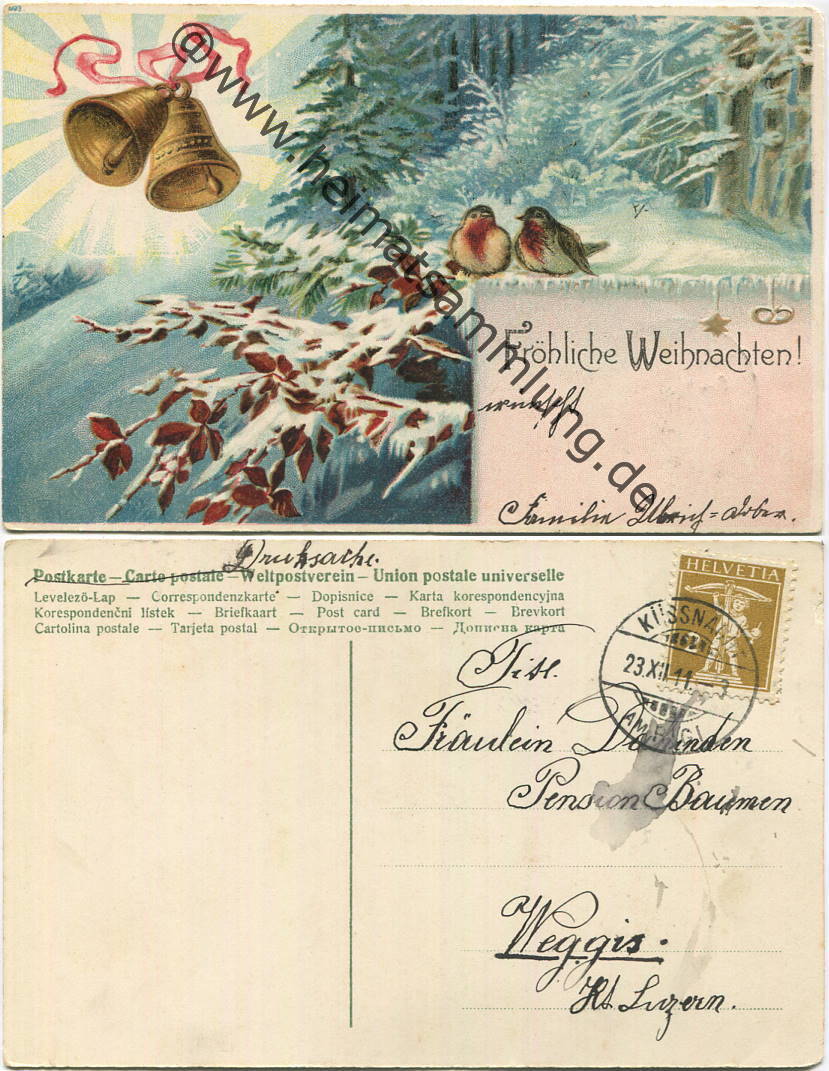 @www.heimatsammlung.de
Fröhliche Weihnachten!
wünscht
Familie Ulrich=
Drucksache.
Postkarte — Carte postale — Weltpostverein — Union postale universelle
Levelező-Lap — Correspondenzkarte — Dopisnice — Karta korespondencyjna
Korespondenční lístek — Briefkaart — Post card — Brefkort — Brevkort
Cartolina postale — Tarjeta postal — Открытое-письмо — Дописна карта
HELVETIA
KÜSSNACHT
23.XII.11.
AM RIGI
Titl.
Fräulein
Pension Baumen
Weggis.
Kt. Luzern.